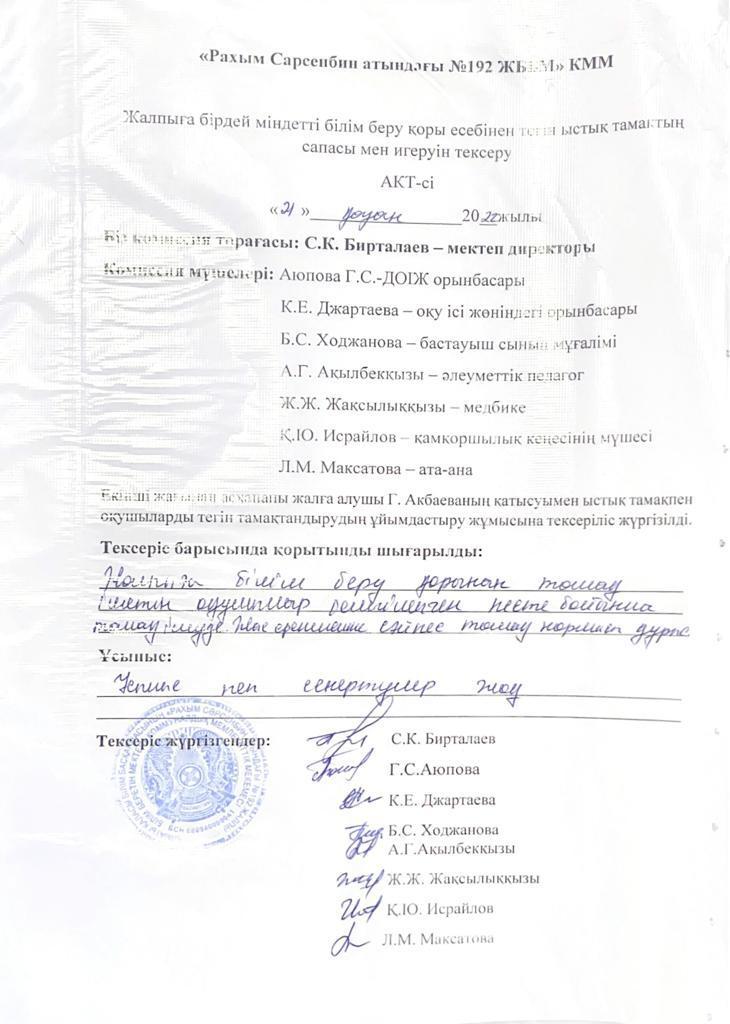 «Рахым Сарсенбин атындағы №192 ЖББМ» КММ
Жалпыға бірдей міндетті білім беру қоры есебінен тегін ыстық тамақтың
сапасы мен игеруін тексеру
АКТ-сі
«21» қазан 2022жылы
Бір комиссия төрағасы: С.К. Бирталаев – мектеп директоры
Комиссия мүшелері: Аюпова Г.С.-ДОІЖ орынбасары
К.Е. Джартаева – оқу ісі жөніндегі орынбасары
Б.С. Ходжанова – бастауыш сынып мұғалімі
А.Г. Ақылбекқызы – әлеуметтік педагог
Ж.Ж. Жақсылыққызы – медбике
Қ.Ю. Исраилов – қамқоршылық кеңесінің мүшесі
Л.М. Максатова – ата-ана
Екінші жағынан асхананы жалға алушы Г. Акбаеваның қатысуымен ыстық тамақпен
оқушыларды тегін тамақтандырудың ұйымдастыру жұмысына тексеріліс жүргізілді.
Тексеріс барысында қорытынды шығарылды:
білім беру қорынан тамақ
ішетін оқушылар бекітілген кесте бойынша
тамақ ішуде. сәйкес тамақ нормасы дұрыс
Ұсыныс:
Ұсыныс пен ескертулер жоқ
Тексеріс жүргізгендер:
С.К. Бирталаев
Г.С.Аюпова
К.Е. Джартаева
Б.С. Ходжанова
А.Г.Ақылбекқызы
Ж.Ж. Жақсылыққызы
Қ.Ю. Исрайлов
Л.М. Максатова